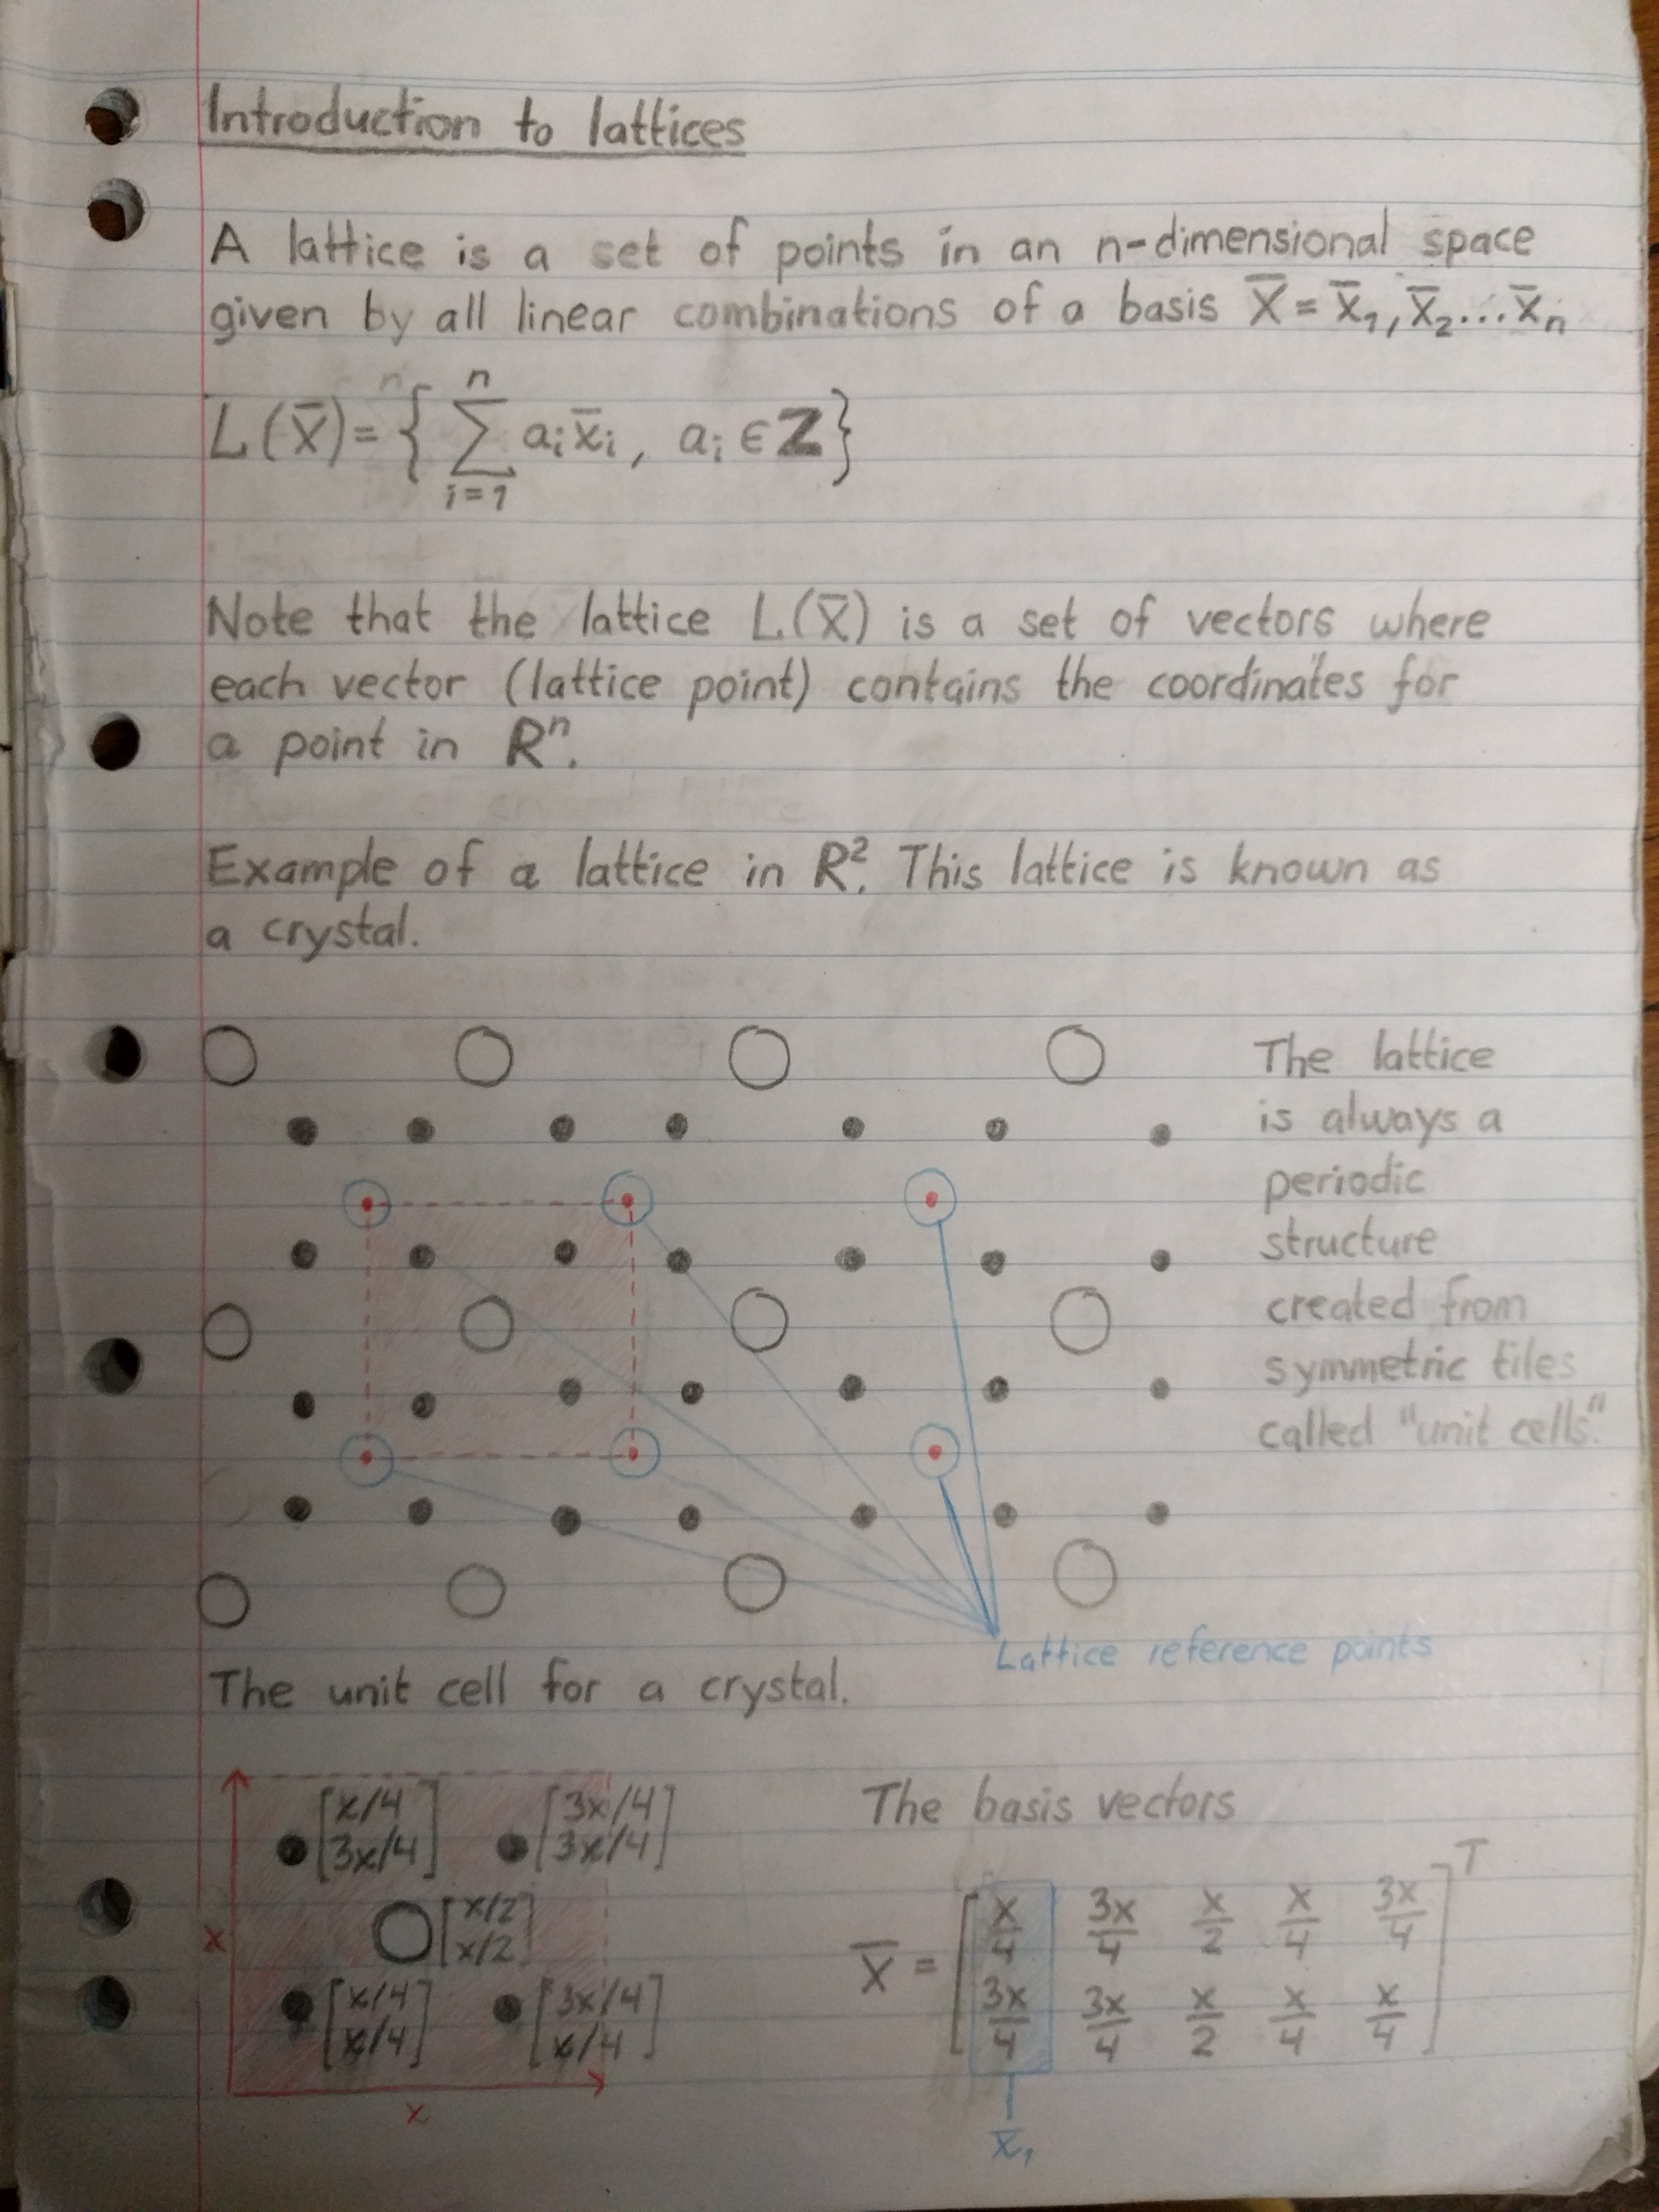 Introduction to lattices
A lattice is a set of points in an n-dimensional space
given by all linear combinations of a basis X̅ = x̅₁, x̅₂...x̅ₙ
L(x̅) = { ∑ aᵢx̅ᵢ, aᵢ ∈ Z}
n
i=1
Note that the lattice L(x̅) is a set of vectors where
each vector (lattice point) contains the coordinates for
a point in Rⁿ.
Example of a lattice in R². This lattice is known as
a crystal.
The lattice
is always a
periodic
structure
created from
symmetric tiles
called "unit cells."
Lattice reference points
The unit cell for a crystal.
[x/4 3x/4] [3x/4 3x/4]
[x/2 x/2]
[x/4 x/4] [3x/4 x/4]
x
x
The basis vectors
X̅ = [x/4 3x/4 x/2 x/4 3x/4
3x/4 3x/4 x/2 x/4 x/4]ᵀ
x̅₁